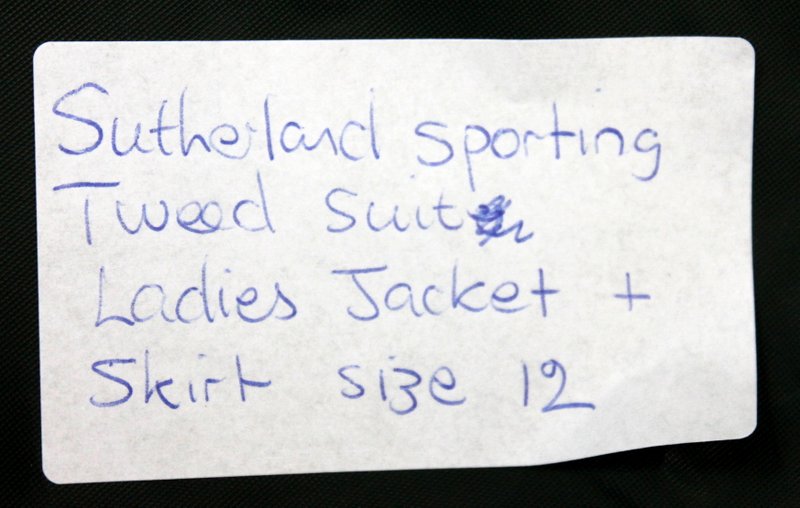 Sutherland sporting
Tweed Suit
Ladies Jacket +
Skirt size 12